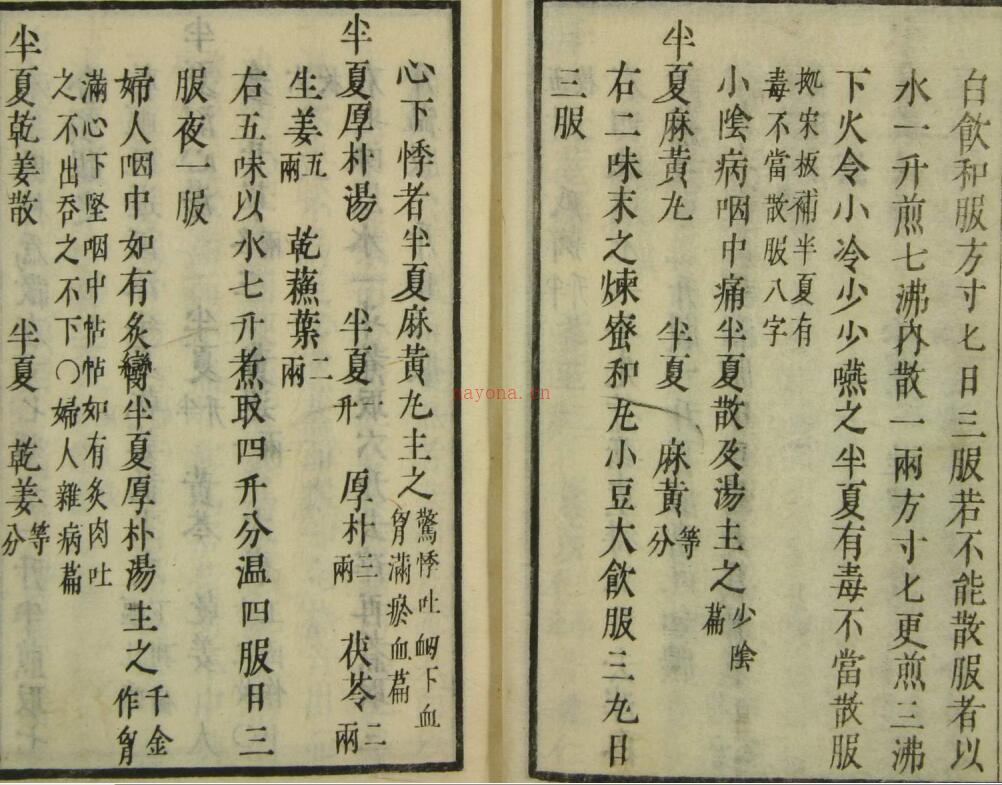 白飮和服方寸匕日三服若不能散服者以
水一升煎七沸內散一兩方寸匕更煎三沸
下火令小冷少少嚥之半夏有毒不當散服
拠宋板補半夏有
毒不當散服八字
小陰病咽中痛半夏散及湯主之少陰
篇
半夏麻黃丸 半夏 麻黃等
分
右二味末之煉蜜和丸小豆大飮服三丸日
三服
心下悸者半夏麻黃丸主之驚悸吐衂下血
胷滿瘀血篇
半夏厚朴湯 半夏升 厚朴三
兩 茯苓二
兩
生姜五
兩 乾蘓葉二
兩
右五味以水七升煮取四升分温四服日三
服夜一服
婦人咽中如有炙臠半夏厚朴湯主之千金
作胷
滿心下堅咽中帖帖如有炙肉吐
之不出吞之不下○婦人雜病篇
半夏乾姜散 半夏 乾姜等
分
nayona.cn